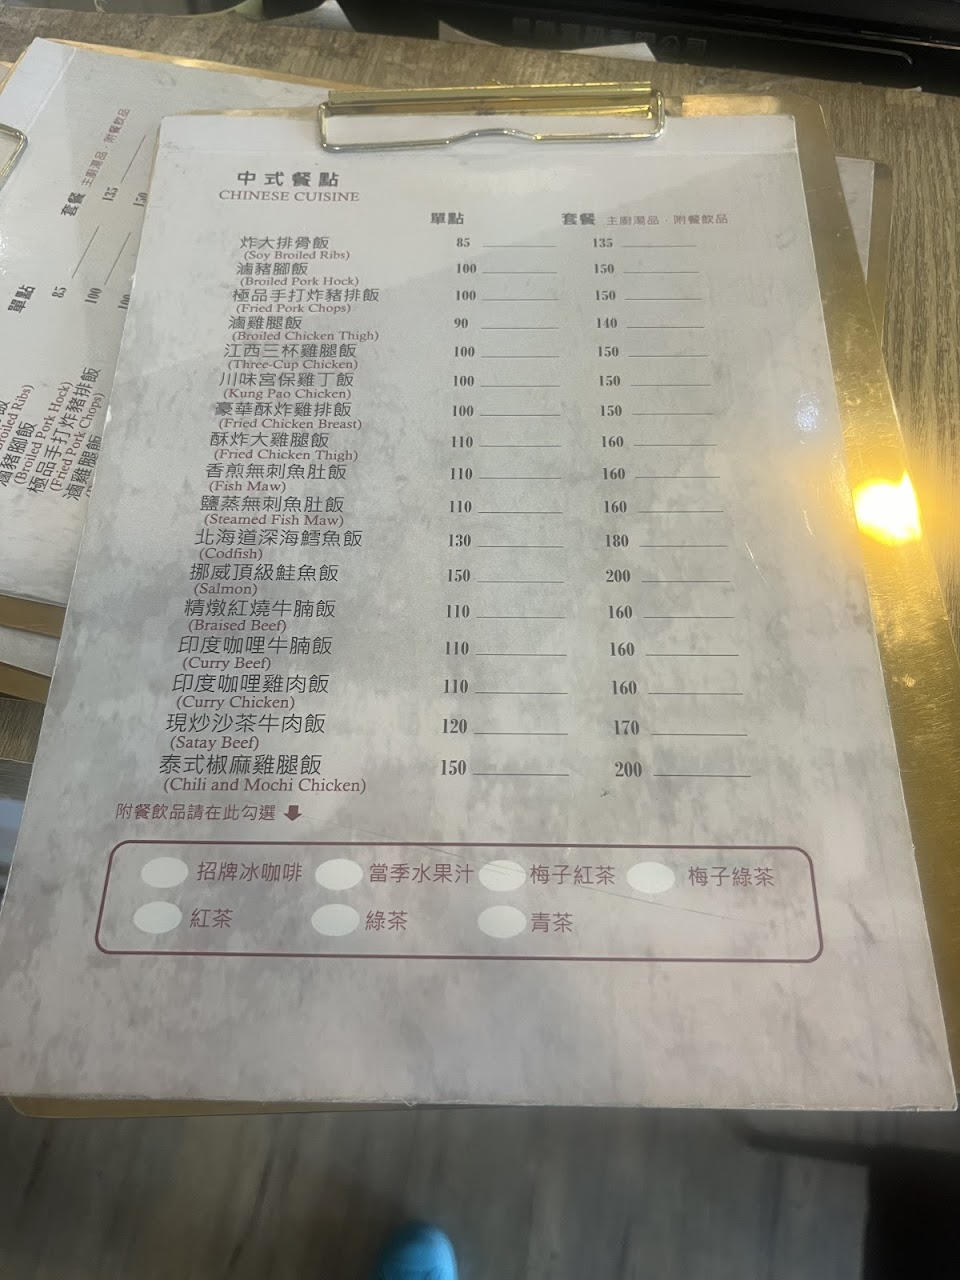 中式餐點
CHINESE CUISINE
單點 套餐 主廚湯品．附餐飲品
炸大排骨飯 85 135
(Soy Broiled Ribs)
滷豬腳飯 100 150
(Broiled Pork Hock)
極品手打炸豬排飯 100 150
(Fried Pork Chops)
滷雞腿飯 90 140
(Broiled Chicken Thigh)
江西三杯雞腿飯 100 150
(Three-Cup Chicken)
川味宮保雞丁飯 100 150
(Kung Pao Chicken)
豪華酥炸雞排飯 100 150
(Fried Chicken Breast)
酥炸大雞腿飯 110 160
(Fried Chicken Thigh)
香煎無刺魚肚飯 110 160
(Fish Maw)
鹽蒸無刺魚肚飯 110 160
(Steamed Fish Maw)
北海道深海鱈魚飯 130 180
(Codfish)
挪威頂級鮭魚飯 150 200
(Salmon)
精燉紅燒牛腩飯 110 160
(Braised Beef)
印度咖哩牛腩飯 110 160
(Curry Beef)
印度咖哩雞肉飯 110 160
(Curry Chicken)
現炒沙茶牛肉飯 120 170
(Satay Beef)
泰式椒麻雞腿飯 150 200
(Chili and Mochi Chicken)
附餐飲品請在此勾選
招牌冰咖啡 當季水果汁 梅子紅茶 梅子綠茶
紅茶 綠茶 青茶
單點 套餐 主廚湯品．附餐飲品
85 135
100 150
100
飯
Broiled Ribs)
滷豬腳飯
(Broiled Pork Hock)
極品手打炸豬排飯
(Fried Pork Chops)
滷雞腿飯